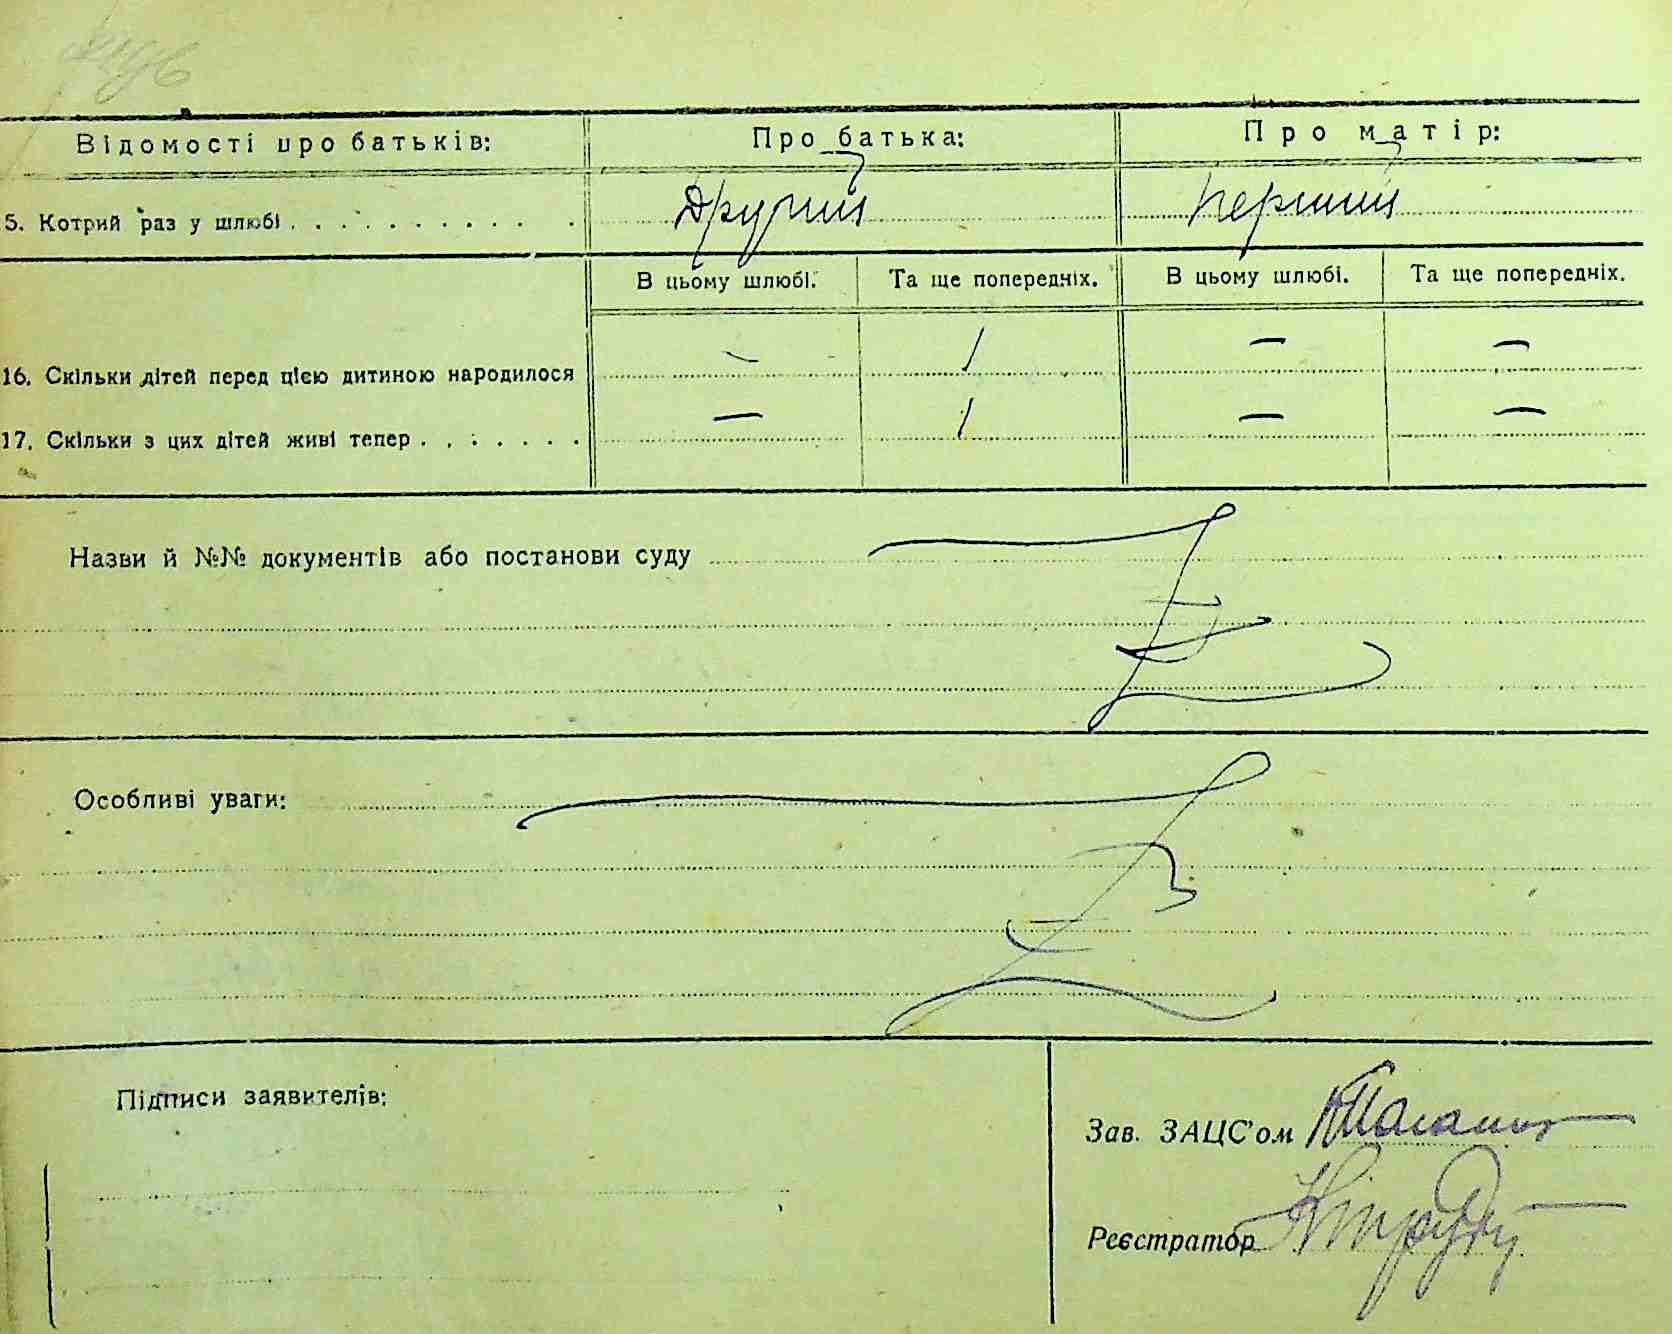 Відомості про батьків: Про батька: Про матір:
5. Котрий раз у шлюбі . . . . . . . . . . Другий Перший
В цьому шлюбі. Та ще попередніх. В цьому шлюбі. Та ще попередніх.
16. Скільки дітей перед цією дитиною народилося – 1 – –
17. Скільки з цих дітей живі тепер . . . . . . . – 1 – –
Назви й №№ документів або постанови суду
Особливі уваги:
Підписи заявителів:
Зав. ЗАЦС'ом
Реєстратор